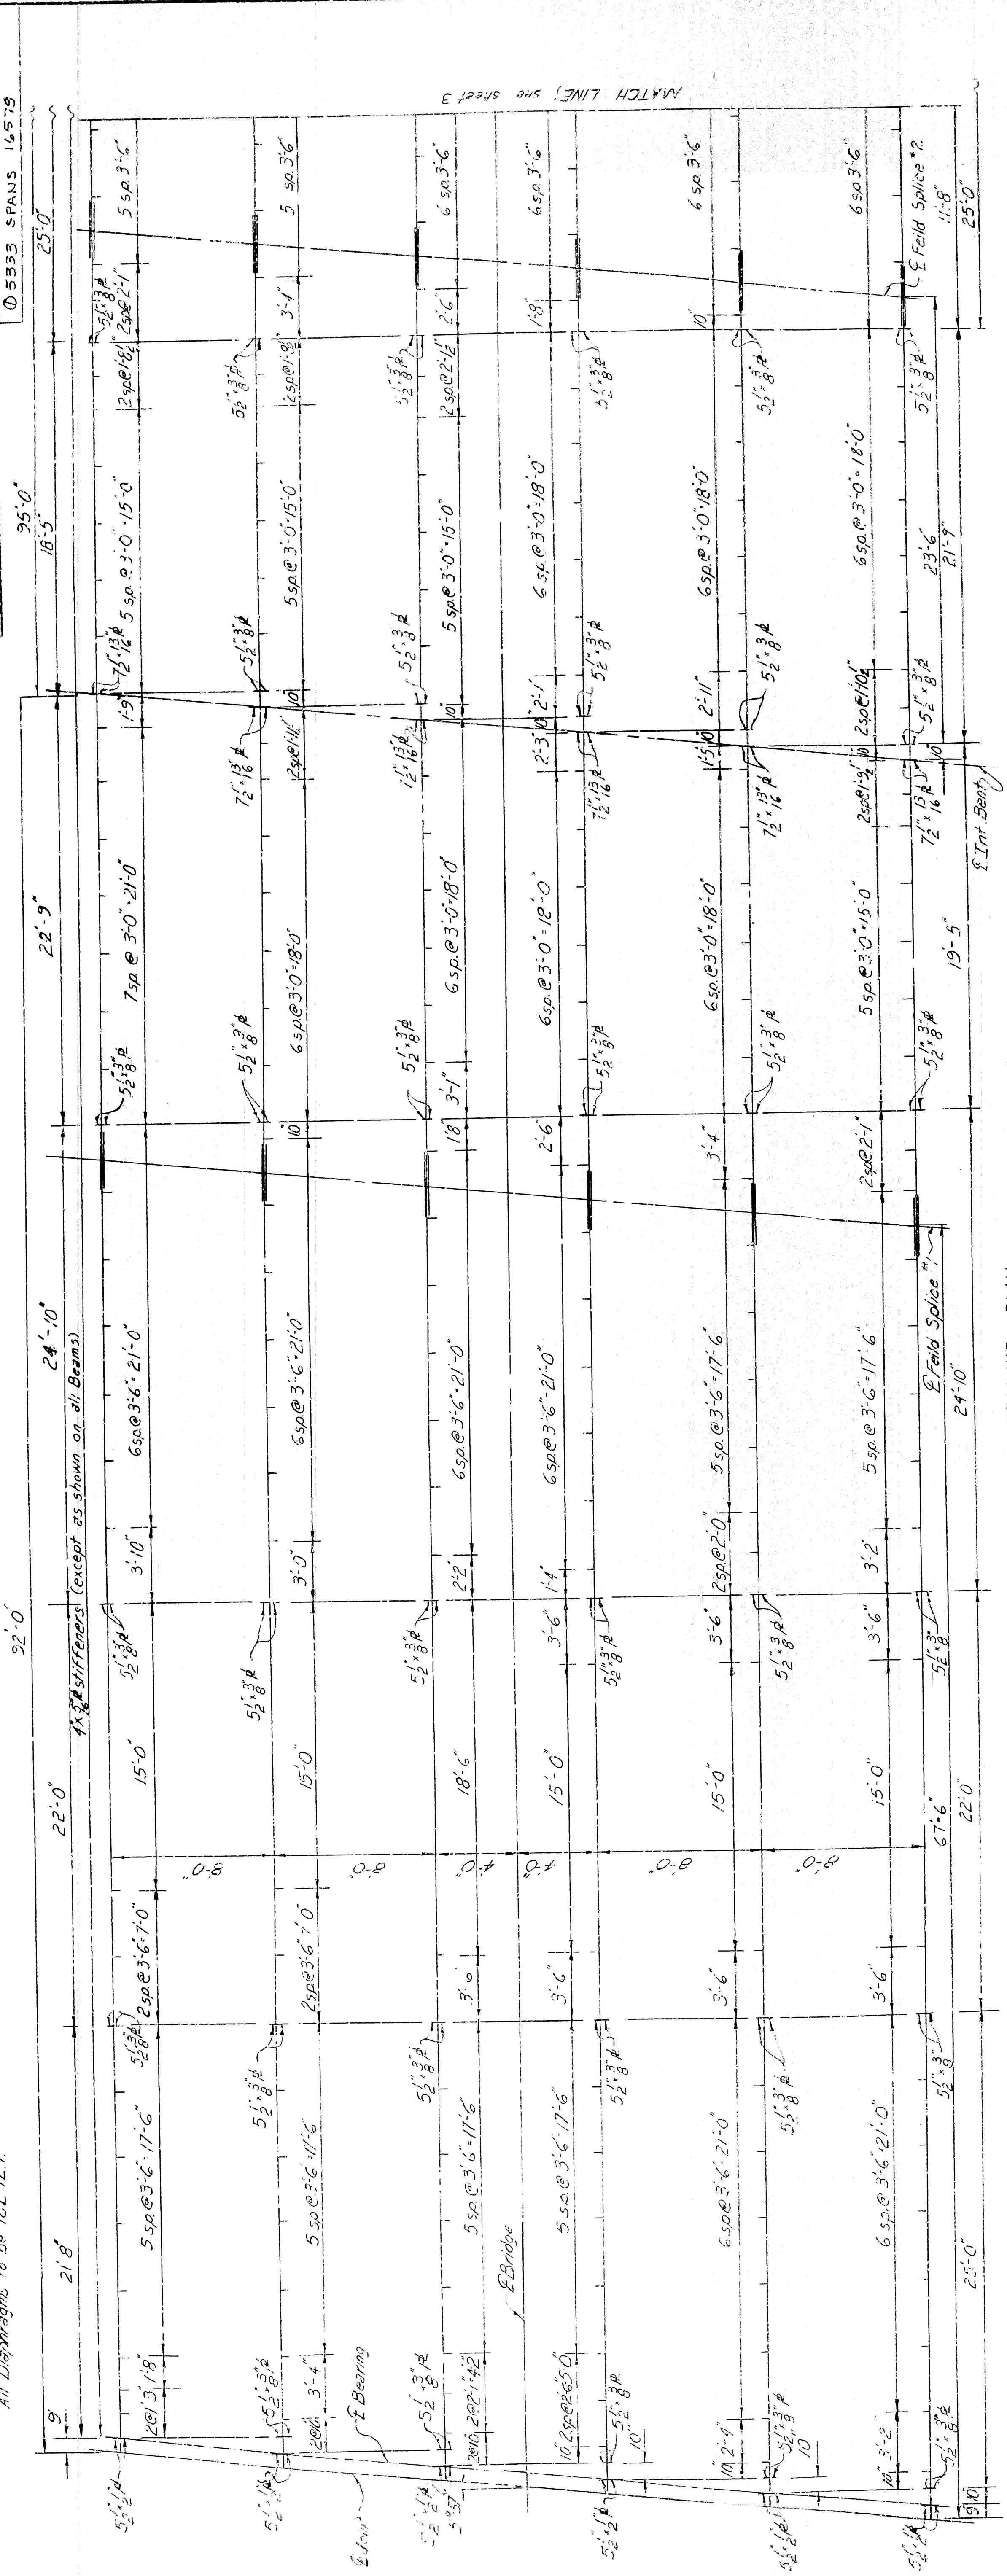 ① 5333 SPANS 16579
All Diaphragms to be 18[
92'-0"
95'-0"
9"
21'8"
22'-0"
24'-10"
22'-9"
18'-5"
25'-0"
4 x 5/16 ℞ stiffeners (except as shown on all Beams)
5 1/2" x 1/2" ℞
2@1'3" 1'-8"
5 sp.@3'-6"=17'-6"
5 1/2" x 3/8" ℞
2 sp.@3'-6"=7'-0"
15'-0"
5 1/2" x 3/8" ℞
3'-10"
6 sp.@3'-6"=21'-0"
5 1/2" x 3/8" ℞
7 sp. @ 3'-0"=21'-0"
1'-9"
7 1/2" x 13/16 ℞
5 sp. @ 3'-0"=15'-0"
2 sp@1'-8 1/2"
5 1/2" x 3/8" ℞
2 sp@2'-1"
5 sp. 3'-6"
8'-0"
5 1/2" x 1/2" ℞
5 1/2" x 3/8" ℞
3'-4"
5 sp@3'-6"=17'-6"
5 1/2" x 3/8" ℞
2 sp@3'-6" 7'-0"
15'-0"
5 1/2" x 3/8" ℞
3'-0"
6 sp.@3'-6"=21'-0"
10"
5 1/2" x 3/8" ℞
6 sp@3'-0"=18'-0"
2 sp@1'-11"
7 1/2" x 13/16 ℞
10"
5 1/2" x 3/8" ℞
5 sp@3'-0"=15'-0"
2 sp@1'-8 1/2"
5 1/2" x 3/8" ℞
3'-1"
5 sp. 3'-6"
8'-0"
℄ Joint
℄ Bearing
5 1/2" x 1/2" ℞
5 1/2" x 3/8" ℞
2@2'-1"=4'2"
5 sp@3'-6"=17'-6"
5 1/2" x 3/8" ℞
3'-6"
18'-6"
5 1/2" x 3/8" ℞
2'-2"
6 sp.@3'-6"=21'-0"
1'8"
3'-1"
5 1/2" x 3/8" ℞
6 sp@3'-0"=18'-0"
10"
5 1/2" x 3/8" ℞
5 sp@3'-0"=15'-0"
2 sp@2'-1 1/2"
5 1/2" x 3/8" ℞
2'-6"
6 sp 3'-6"
4'-0"
4'-0"
℄ Bridge
MATCH LINE; see sheet 3
5 1/2" x 1/2" ℞
10" 2 sp@2'-6"=5'0"
5 1/2" x 3/8" ℞
10"
5 sp.@3'-6"=17'-6"
5 1/2" x 3/8" ℞
3'-6"
15'-0"
3'-6"
5 1/2" x 3/8" ℞
1'-4"
6 sp@3'-6"=21'-0"
2'-6"
5 1/2" x 3/8" ℞
6 sp.@3'-0"=18'-0"
2'-3"
10"
2'-1"
7 1/2" x 13/16 ℞
5 1/2" x 3/8" ℞
6 sp@3'-0"=18'-0"
5 1/2" x 3/8" ℞
1'-8"
6 sp. 3'-6"
8'-0"
5 1/2" x 1/2" ℞
10" 2'-4"
5 1/2" x 3/8" ℞
10"
6 sp@3'-6"=21'-0"
5 1/2" x 3/8" ℞
3'-6"
15'-0"
3'-6"
5 1/2" x 3/8" ℞
2 sp@2'-0"
5 sp.@3'-6"=17'-6"
3'-4"
5 1/2" x 3/8" ℞
6 sp@3'-0"=18'-0"
1'-5"
10"
2'-11"
7 1/2" x 13/16 ℞
5 1/2" x 3/8" ℞
6 sp@3'-0"=18'-0"
5 1/2" x 3/8" ℞
10"
6 sp. 3'-6"
8'-0"
5 1/2" x 1/2" ℞
10" 3'-2"
5 1/2" x 3/8" ℞
6 sp@3'-6"=21'-0"
5 1/2" x 3/8"
3'-6"
15'-0"
3'-6"
5 1/2" x 3/8"
3'-2"
5 sp.@3'-6"=17'-6"
2 sp@2'-1"
5 1/2" x 3/8" ℞
5 sp.@3'-0"=15'-0"
2 sp@1'-9 1/2"
10"
2 sp@1'-10 1/2"
7 1/2" x 13/16 ℞
5 1/2" x 3/8" ℞
6 sp.@3'-0"=18'-0"
5 1/2" x 3/8" ℞
6 sp 3'-6"
℄ Feild Splice #1
℄ Int. Bent
℄ Feild Splice #2
67'-6"
23'-6"
11'-8"
9" 10"
25'-0"
22'-0"
24'-10"
19'-5"
10"
21'-9"
25'-0"